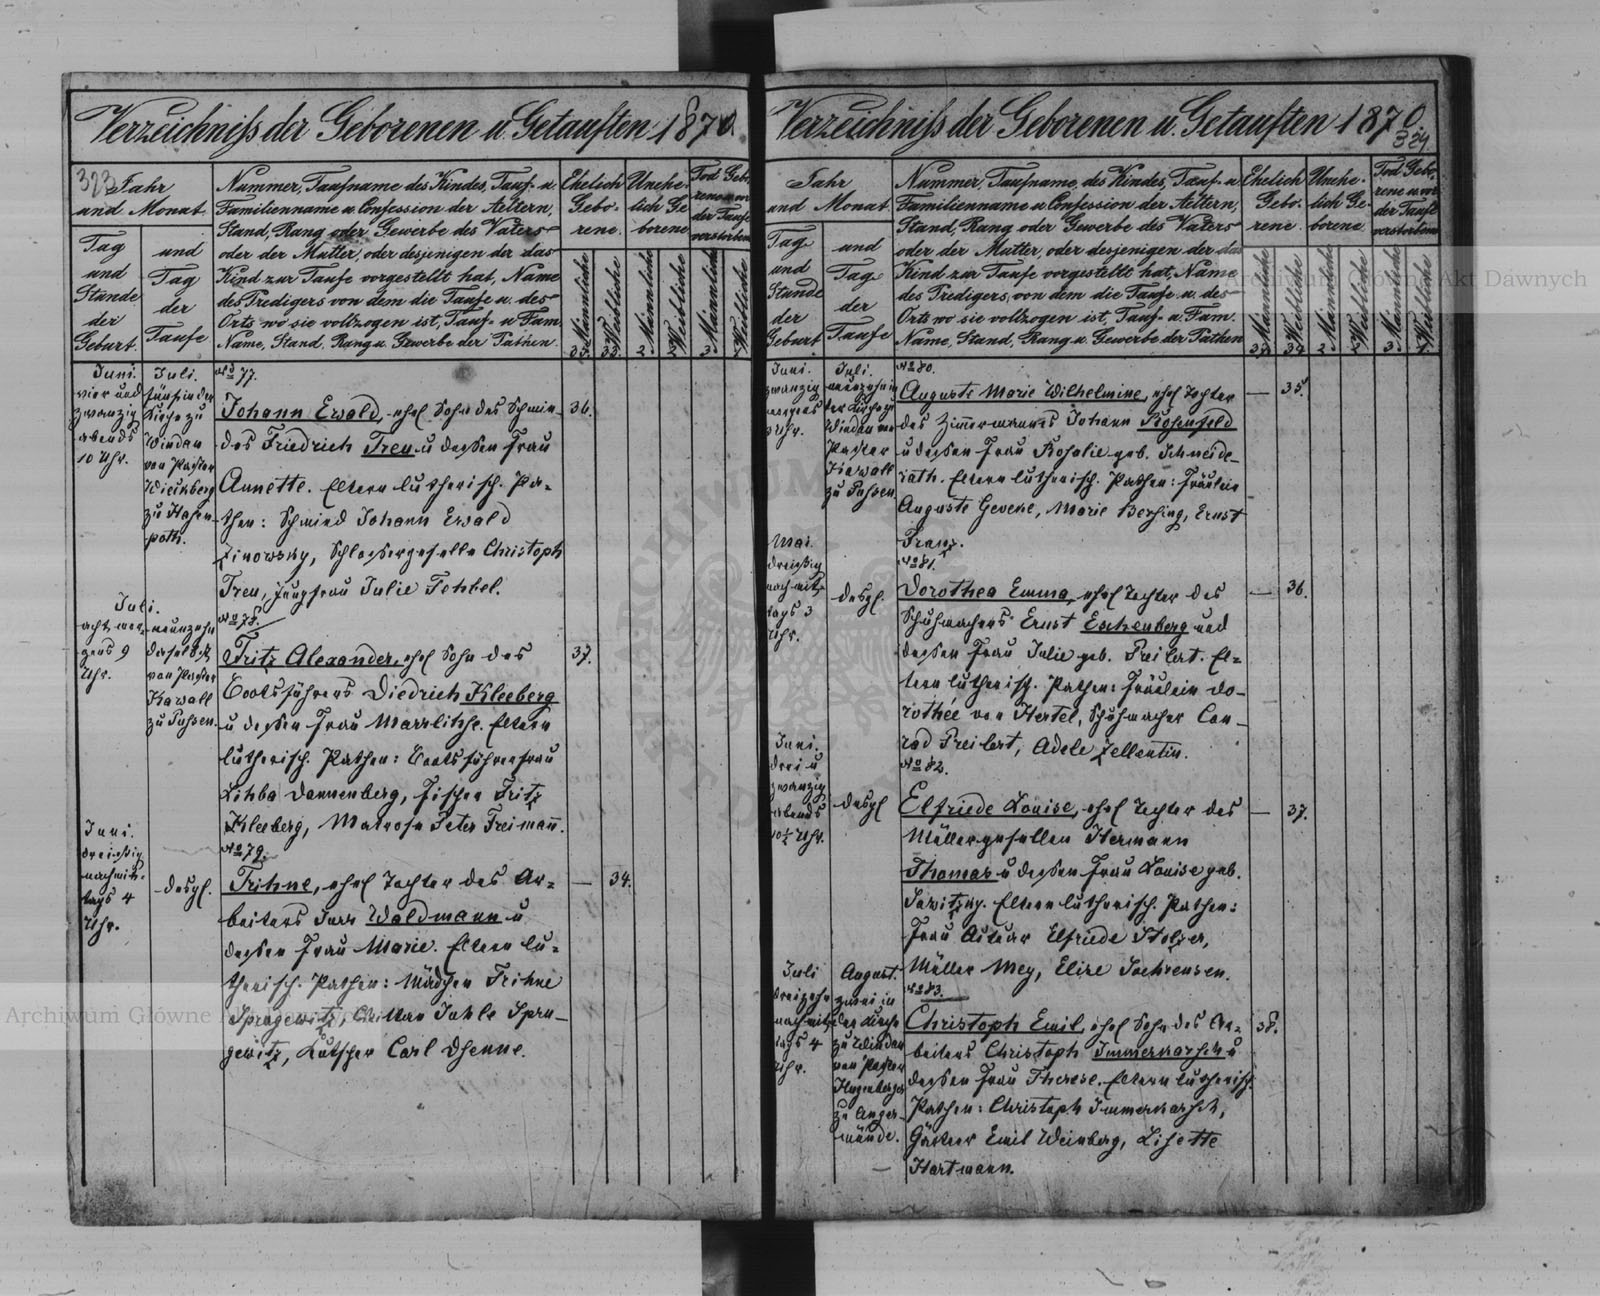 Verzeichniß der Geborenen u. Getauften 1870.
323
Jahr
und Monat
Tag
und
Stunde
der
Geburt.
und
Tag
der
Taufe
Nummer, Taufname des Kindes, Tauf- u.
Familienname u. Confession der Aeltern,
Stand, Rang oder Gewerbe des Vaters
oder der Mutter, oder desjenigen der das
Kind zur Taufe vorgestellt hat, Name
des Predigers von dem die Taufe u. des
Orts wo sie vollzogen ist, Tauf- u Fam.
Name, Stand, Rang u. Gewerbe der Pathen.
Ehelich
Gebo-
rene.
Unehe-
lich Ge
borene
Tod Gebo-
rene u. vor
der Taufe
verstorbene
Männliche
Weibliche
Männliche
Weibliche
Männliche
Weibliche
35. 33. 2. 2. 3.
Juni.
vier und
zwanzig
abends
10 Uhr.
Juli.
fünf in der
Kirche zu
Windau
von Pastor
Wieinberg
zu Hasen-
poth.
No 77.
Johann Ewald, ehel Sohn des Schmie- 36.
des Friedrich Treu u dessen Frau
Annette. Eltern lutherisch. Pa-
then: Schmied Johann Ewald
Zinowsky, Schlossergeselle Christoph
Treu, Jungfrau Julie Fohbel.
Juli.
acht mor-
gens 9
Uhr.
neunzehn
daselbst
von Pastor
Kawall
zu Pussen.
No 78.
Fritz Alexander, ehel Sohn des 37.
Bootsführers Diedrich Kleeberg
u dessen Frau Marrlitzhe. Eltern
lutherisch. Pathen: Bootsführerfrau
Lihba Dannenberg, Fischer Fritz
Kleeberg, Matrose Peter Freimann.
Juni.
dreißig
nachmit-
tags 4
Uhr.
desgl.
No 79.
Trihne, ehel Tochter des Ar- — 34.
beiters Jurr Waldmann u
dessen Frau Marie. Eltern lu-
therisch. Pathen: Mädchen Trihne
Sprogewitz, Jahle Spru-
gewitz, Kutscher Carl Dhenne.
Verzeichniß der Geborenen u. Getauften 1870.
324.
Jahr
und Monat
Tag
und
Stunde
der
Geburt
und
Tag
der
Taufe
Nummer, Taufname, des Kindes, Tauf- u
Familienname u. Confession der Aeltern,
Stand, Rang oder Gewerbe des Vaters
oder der Mutter oder desjenigen der das
Kind zur Taufe vorgestellt hat, Name
des Predigers, von dem die Taufe u. des
Orts wo sie vollzogen ist, Tauf- u. Fam.
Name, Stand, Rang u. Gewerbe der Pathen
Ehelich
Gebo-
rene.
Unehe-
lich Ge
borene.
Tod Gebo-
rene u. vor
der Taufe
verstorbene
Männliche
Weibliche
Männliche
Weibliche
Männliche
Weibliche
37. 34. 2. 2. 3. 1.
Juni.
zwanzig
morgens
Uhr.
Juli.
neunzehn in
der Kirche zu
Windau von
Pastor
Kawall
zu Pussen.
No 80.
Auguste Marie Wilhelmine, ehel Tochter — 35.
des Zimmermannes Johann Rosenfeld
u dessen Frau Rosalie geb. Schneide-
rath. Eltern lutherisch. Pathen: Fräulein
Auguste Geveke, Marie Bersing, Ernst
Franz.
Mai.
dreißig
nachmit-
tags 3
Uhr.
desgl.
No 81.
Dorothea Emma, ehel Tochter des — 36.
Schuhmachers Ernst Eschenberg und
dessen Frau Julie geb. Preilert. El-
tern lutherisch. Pathen: Fräulein Do-
rothée von Hertel, Schuhmacher Con-
rad Preilert, Adele Zellentin.
Juni.
drei u
zwanzig
abends
10½ Uhr.
desgl
No 82.
Elfriede Louise, ehel Tochter des — 37.
Müllergesellen Hermann
Thomas u dessen Frau Louise geb.
Sawitzky. Eltern lutherisch. Pathen:
Frau Actuar Elfriede Stolzer,
Müller Mey, Elise Jochensen.
Juli
dreizehn
nachmit-
tags 4
Uhr.
August.
zwei in
der Kirche
zu Windau
von Pastor
Hugenberger
zu Anger-
münde.
No 83.
Christoph Emil, ehel Sohn des Ar- 38.
beiters Christoph Immerkasch u
dessen Frau Therese. Eltern lutherisch.
Pathen: Christoph Immerkasch,
Gärtner Emil Weinberg, Lisette
Hartmann.
Archiwum Główne Akt Dawnych
Archiwum Główne